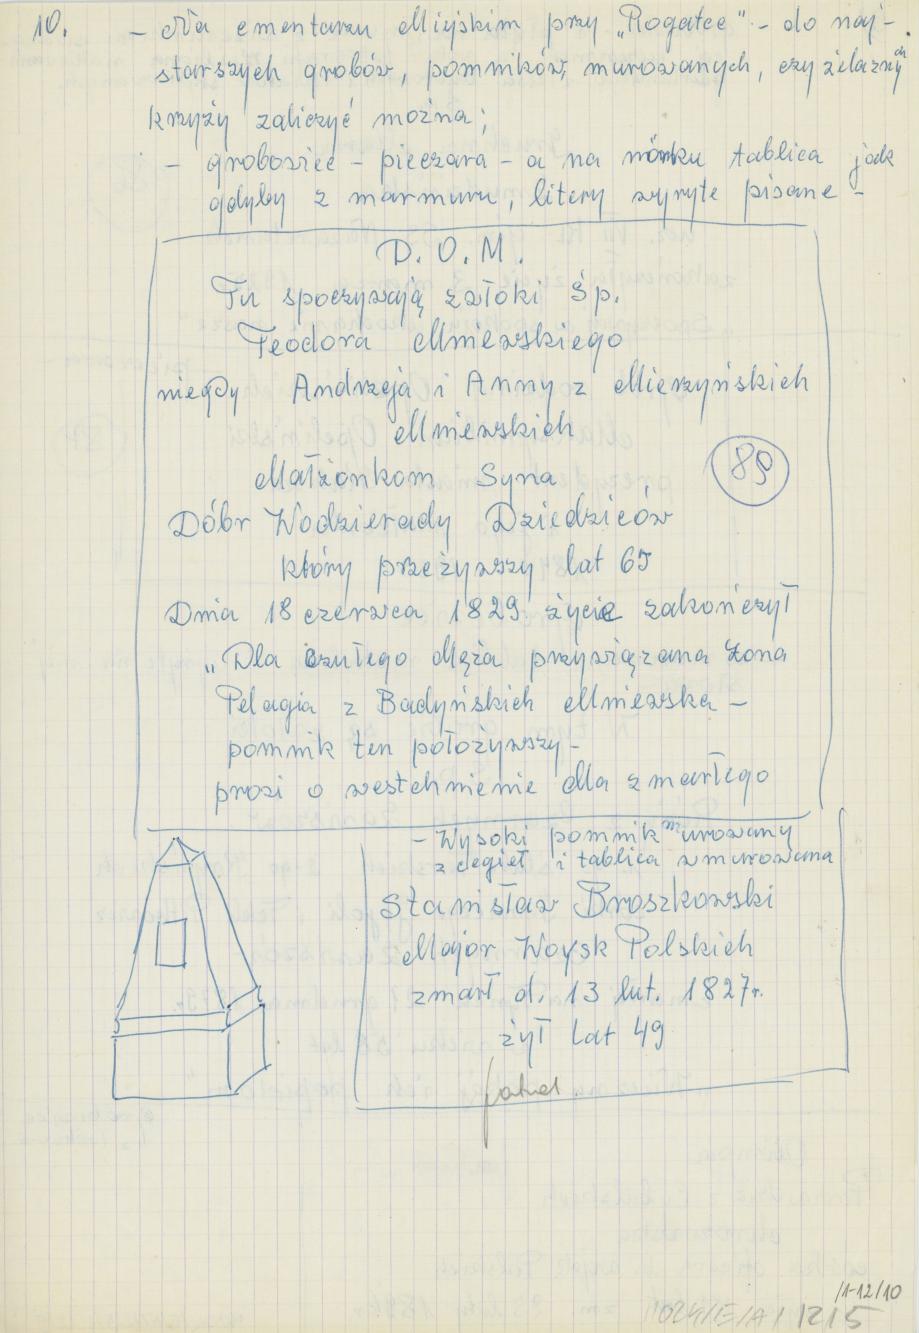 10. - Na cmentarzu Miejskim przy „Rogatce" - do naj-
starszych grobów, pomników, murowanych, czy żelaznych
krzyży zaliczyć można;
- grobowiec - pieczara - a na wnęku tablica jak
gdyby z marmuru, litery wyryte pisane -
D. O. M.
Tu spoczywają zwłoki śp.
Teodora Mniewskiego
niegdy Andrzeja i Anny z Mierzyńskich
Mniewskich
Małżonkom Syna
(89)
Dóbr Wodzierady Dziedziców
który przeżywszy lat 65
Dnia 18 czerwca 1829. życie zakończył
„Dla czułego Męża przywiązana żona
Pelagia z Badyńskich Mniewska -
pomnik ten położywszy -
prosi o westchnienie dla zmarłego
- Wysoki pomnik murowany
z cegieł i tablica wmurowana
Stanisław Broszkowski
Major Woysk Polskich
zmarł d. 13 lut. 1827r.
żył lat 49
/1-12/10
1024/E/A/1215